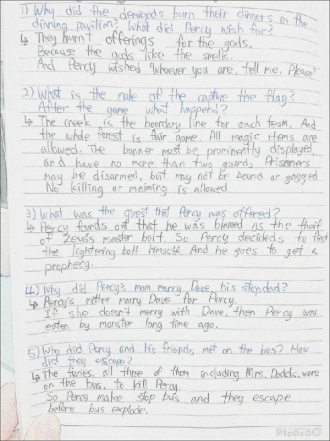 1) Why did the demigods burn their dinners in the
dinning pavilion? What did Percy wish for?
↳ They burnt offerings for the gods.
Because the gods like the smell.
And Percy wished "Whoever you are, tell me, Please."
2) What is the rule of the capture the flag?
After the game what happened?
↳ The creek is the boundary line for each team. And
the whole forest is fair game. All magic items are
allowed. The banner must be prominently displayed,
and have no more than two guards. Prisoners
may be disarmed, but may not be bound or gagged.
No killing or maiming is allowed.
3) What was the quest that Percy was offered?
↳ Percy founds out that he was blamed as the thief
of Zeus's master bolt. So Percy decided to find
the lightening bolt himself. And he goes to get a
prophecy.
4) Why did Percy's mom marry Dave, his stepdad?
↳ Percy's mother marry Dave for Percy.
If she doesn't merry with Dave, then Percy was
by monster long time ago.
5) Who did Percy and his friends met on the bus? How
did they escape?
↳ The furies, all three of them including Mrs. Dodds, were
on the bus, to kill Percy.
So Percy make stop bus and they escape
before bus explode.